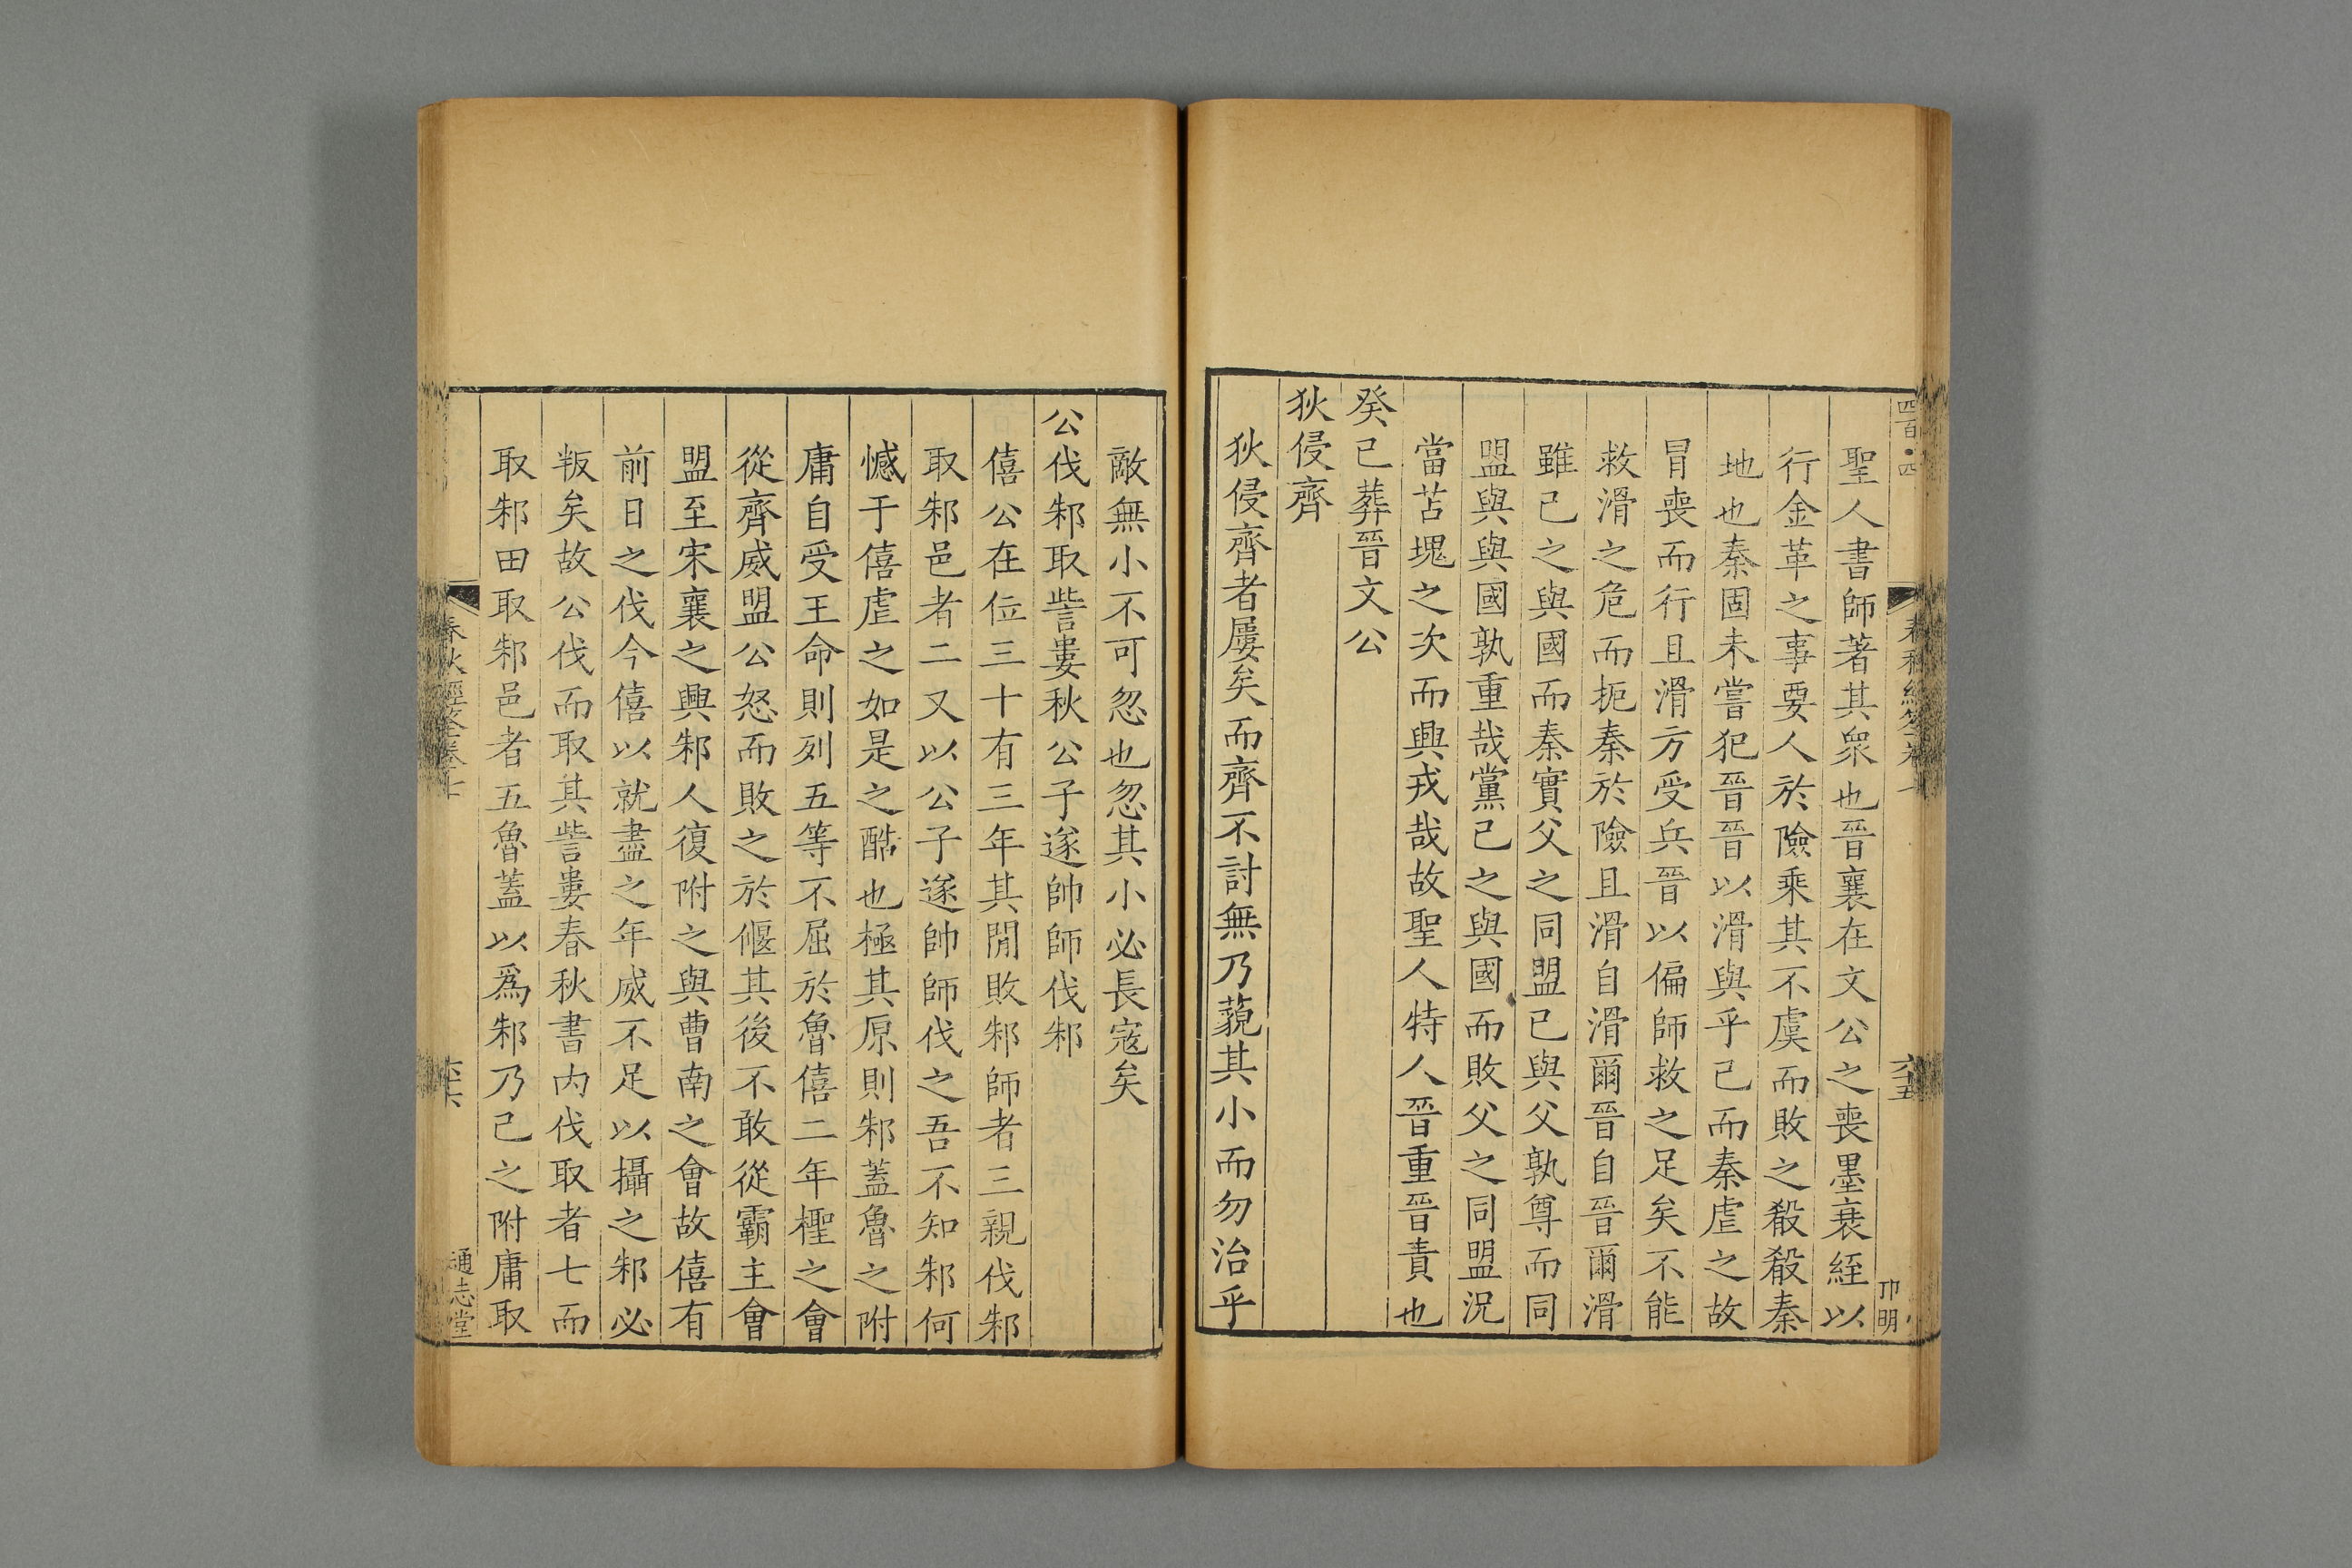 四百〇四
六十五
卭明
聖人書師著其衆也晉襄在文公之喪墨衰絰以
行金革之事要人於險乘其不虞而敗之殽殽秦
地也秦固未嘗犯晉晉以滑與乎己而秦虐之故
冒喪而行且滑方受兵晉以偏師救之足矣不能
救滑之危而扼秦於險且滑自滑爾晉自晉爾滑
雖已之與國而秦實父之同盟已與父孰尊而同
盟與與國孰重哉黨己之與國而敗父之同盟況
當苫塊之次而興戎哉故聖人特人晉重晉責也
癸巳葬晉文公
狄侵齊
狄侵齊者屢矣而齊不討無乃藐其小而勿治乎
敵無小不可忽也忽其小必長寇矣
公伐邾取訾婁秋公子遂帥師伐邾
僖公在位三十有三年其閒敗邾師者三親伐邾
取邾邑者二又以公子遂帥師伐之吾不知邾何
憾于僖虐之如是之酷也極其原則邾蓋魯之附
庸自受王命則列五等不屈於魯僖二年檉之會
從齊威盟公怒而敗之於偃其後不敢從霸主會
盟至宋襄之興邾人復附之與曹南之會故僖有
前日之伐今僖以就盡之年威不足以攝之邾必
叛矣故公伐而取其訾婁春秋書内伐取者七而
取邾田取邾邑者五魯蓋以爲邾乃己之附庸取
通志堂